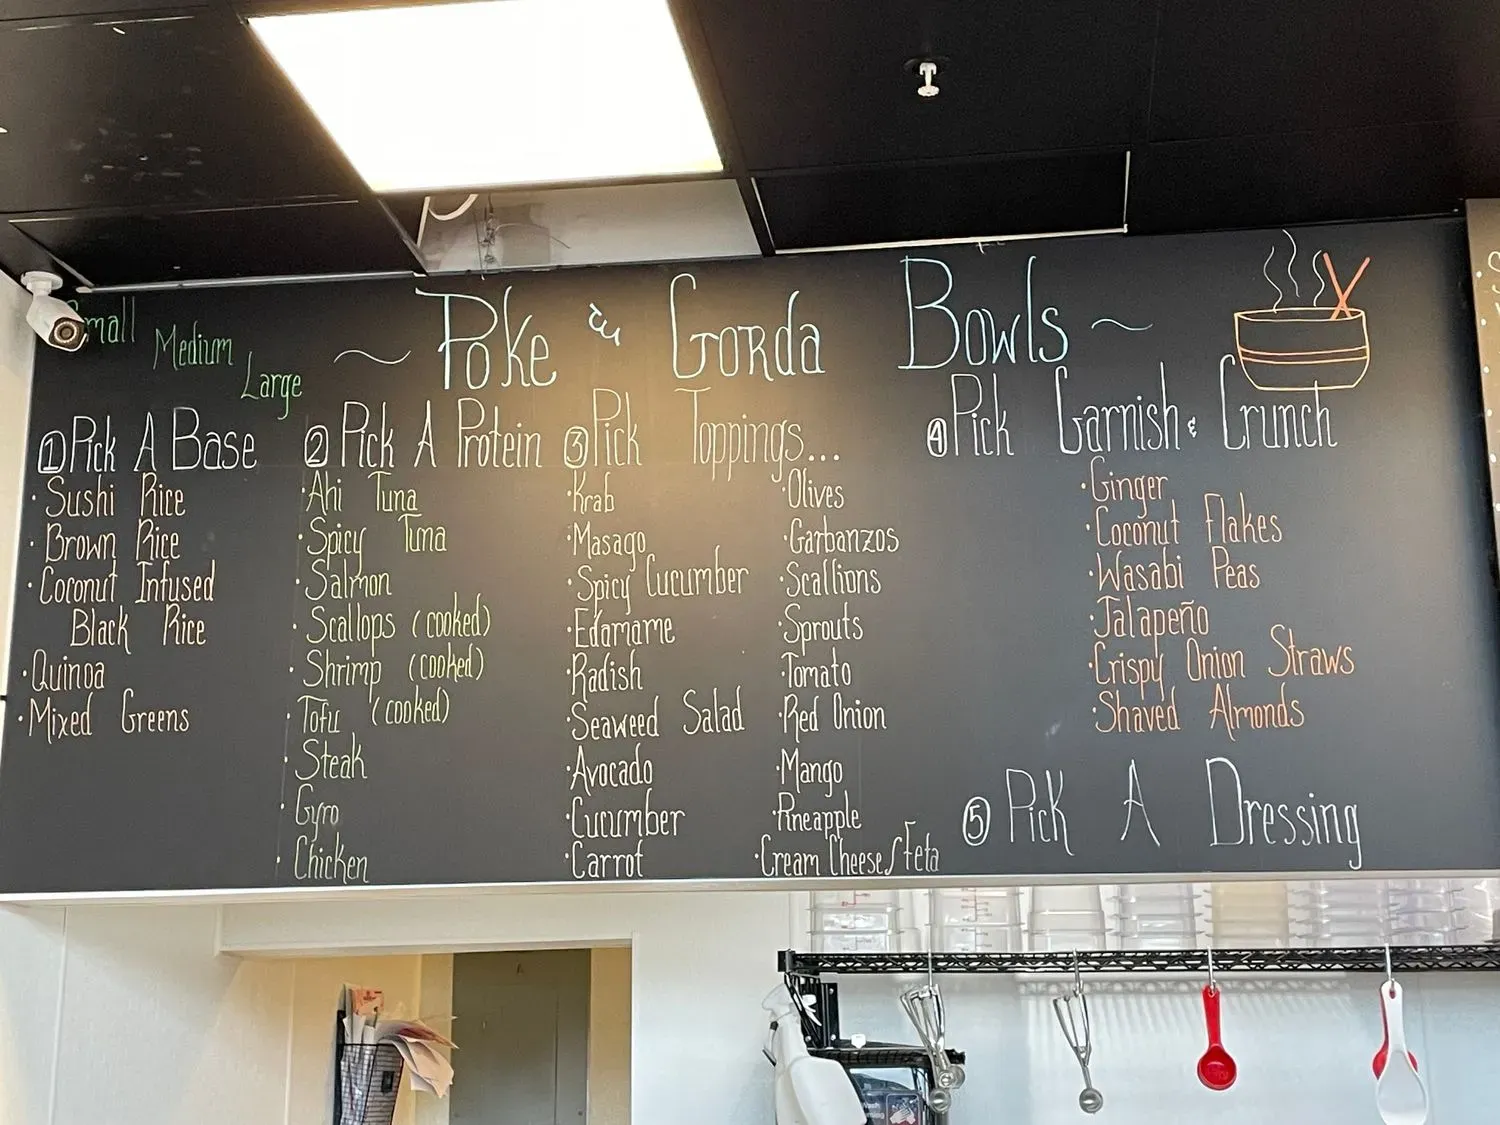 Small
Medium
Large
~ Poke & Gorda Bowls ~
① Pick A Base
· Sushi Rice
· Brown Rice
· Coconut Infused
Black Rice
· Quinoa
· Mixed Greens
② Pick A Protein
· Ahi Tuna
· Spicy Tuna
· Salmon
· Scallops (cooked)
· Shrimp (cooked)
· Tofu (cooked)
· Steak
· Gyro
· Chicken
③ Pick Toppings...
· Krab
· Masago
· Spicy Cucumber
· Edamame
· Radish
· Seaweed Salad
· Avocado
· Cucumber
· Carrot
· Olives
· Garbanzos
· Scallions
· Sprouts
· Tomato
· Red Onion
· Mango
· Pineapple
· Cream Cheese/Feta
④ Pick Garnish & Crunch
· Ginger
· Coconut Flakes
· Wasabi Peas
· Jalapeño
· Crispy Onion Straws
· Shaved Almonds
⑤ Pick A Dressing